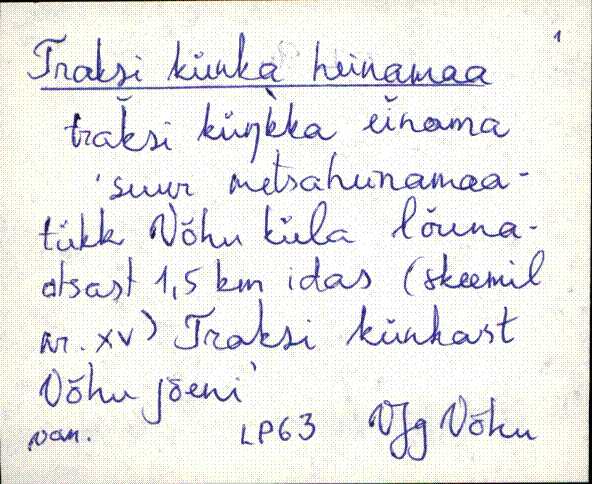 1
Traksi künka heinamaa
traksi küŋkka einama
'suur metsaheinamaa-
tükk Võhu küla lõuna-
otsast 1,5 km idas (skeemil
nr. XV) Traksi künkast
Võhu jõeni'
van. LP63 VJg Võhu